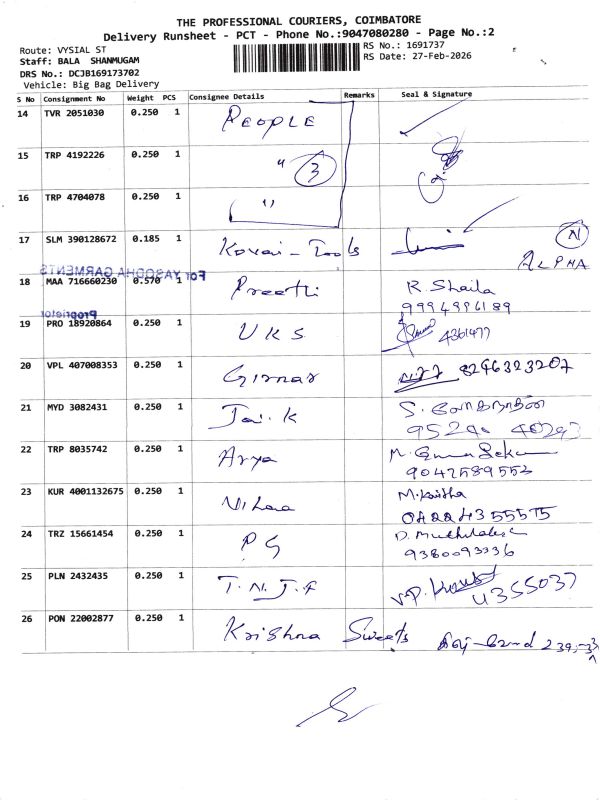 THE PROFESSIONAL COURIERS, COIMBATORE
Delivery Runsheet - PCT - Phone No.:9047080280 - Page No.:2
Route: VYSIAL ST
RS No.: 1691737
Staff: BALA SHANMUGAM
RS Date: 27-Feb-2026
DRS No.: DCJB169173702
Vehicle: Big Bag Delivery
S No Consignment No Weight PCS Consignee Details Remarks Seal & Signature
14 TVR 2051030 0.250 1 PEOPLE
15 TRP 4192226 0.250 1 " 3
16 TRP 4704078 0.250 1 "
17 SLM 390128672 0.185 1 Kovai-Tools N
ALPHA
For YASODHA GARMENTS
18 MAA 716660230 0.570 1 Preethi R. Shaila
9994996189
Proprietor
19 PRO 18920864 0.250 1 UKS 4361477
20 VPL 407008353 0.250 1 Girnar 8296323207
21 MYD 3082431 0.250 1 Jai.K S.
22 TRP 8035742 0.250 1 Arya M.
9042589553
23 KUR 4001132675 0.250 1 Nihaa
0422 43 55575
24 TRZ 15661454 0.250 1 PG D.
9380093336
25 PLN 2432435 0.250 1 T.N.J.F V.P. 4355037
26 PON 22002877 0.250 1 Krishna Sweets